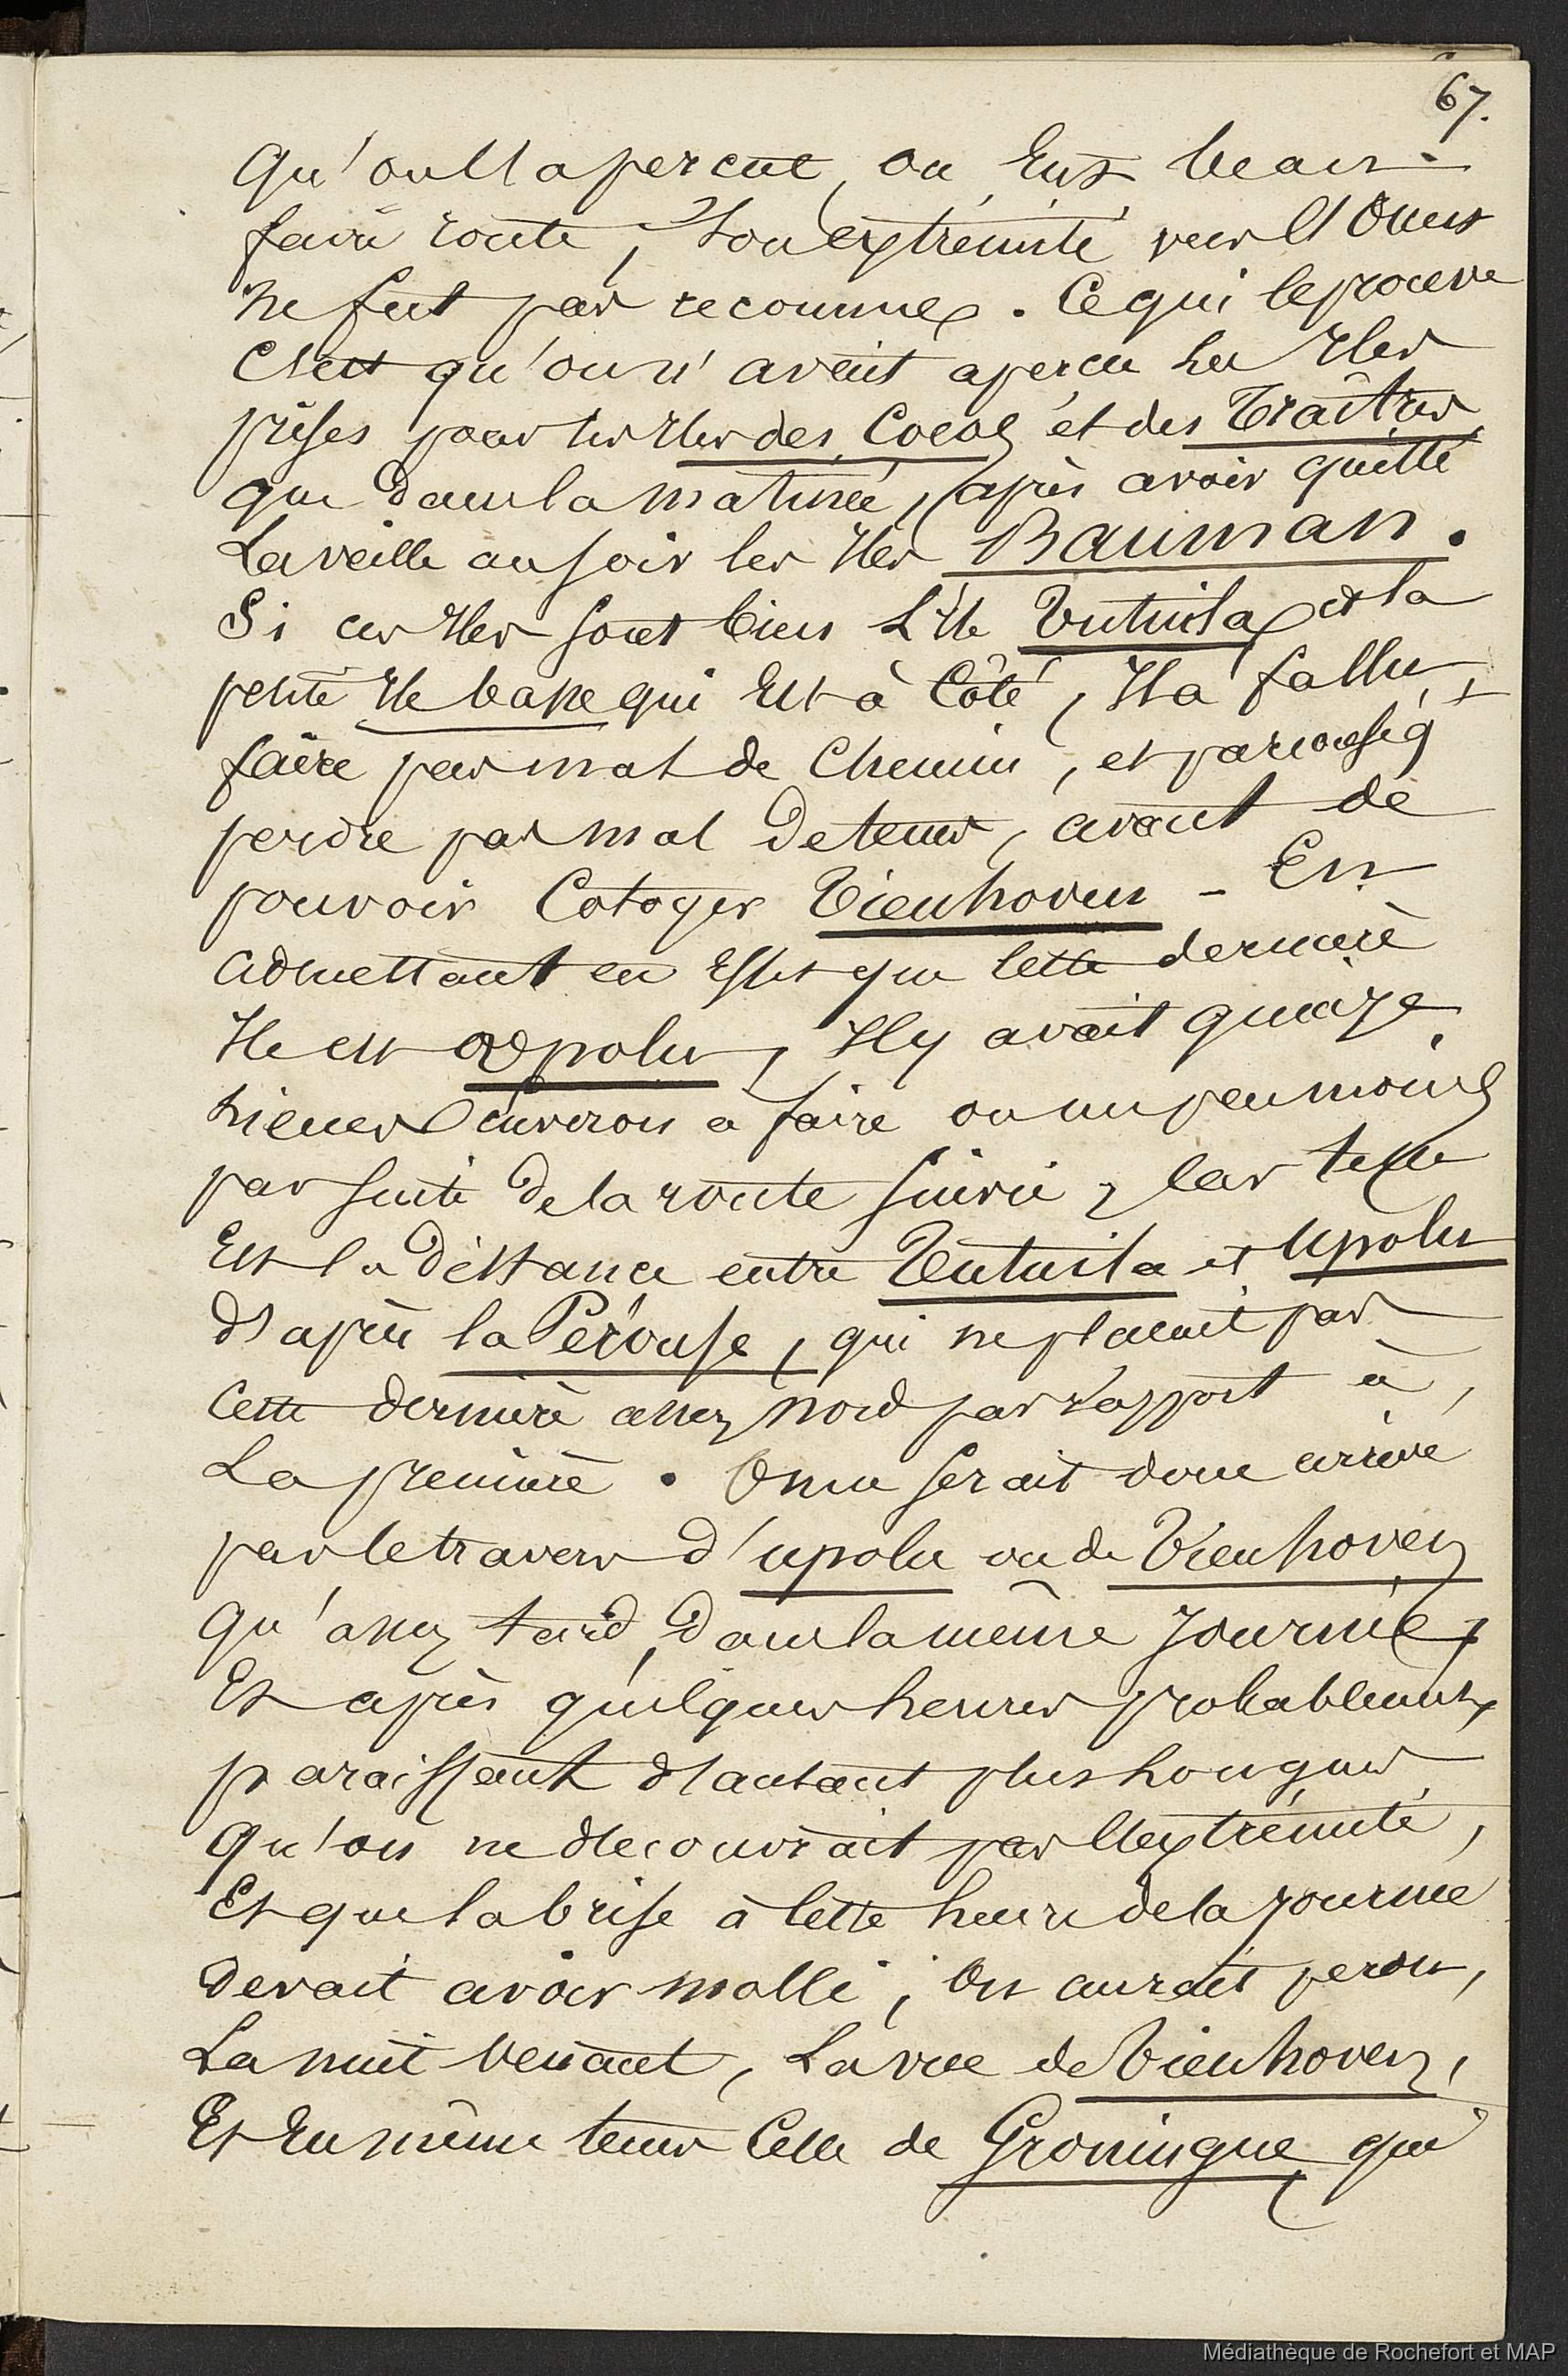 67.
Qu'on l'apercut, on Eut beau
faire route, Son extrémité vers l'Ouest
ne fut pas reconnue. Ce qui le prouve
C'est qu'on n'avait aperçu les Iles
prises pour les Iles des Cocos et des Traîtres
que dans la matinée, après avoir quitté
La veille au soir les Iles Bauman.
Si ces Iles sont bien L'Ile Tutuila et la
petite Ile basse qui Est à Côté, Il a fallu
faire pas mal de Chemin, et par conség
perdre pas mal de tems, avant de
pouvoir Cotoyer Tienhoven - En
admettant en Effet que Cette dernière
Ile est Opolu, Il y avait quinze
lieues environ à faire ou un peu moins
par suite de la route suivie, Car telle
Est la distance entre Tutuila et Upolu
d'après la Pérouse, qui ne placait pas
Cette dernière assez nord par rapport à
La première. On ne serait donc arrivé
par le travers d'upolu ou de Tienhoven
qu'assez tard, dans la même Journée,
Et après quelques heures probablement,
paraissant d'autant plus longues
qu'on ne découvrait pas l'extrémité,
Et que la brise à Cette heure de la journée
devait avoir molli; On aurait perdu,
La nuit venant, La vue de Tienhoven,
Et En même tems Celle de Groningue que
Médiathèque de Rochefort et MAP